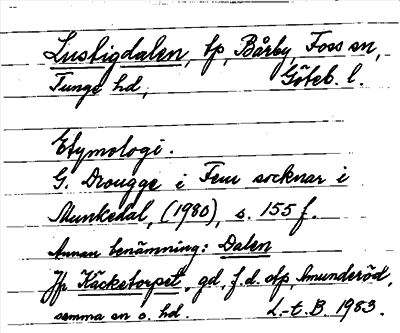 Lustigdalen, tp, Bärby, Foss sn,
Tunge hd, Göteb. l.
Etymologi.
G. Drougge i Fem socknar i
Munkedal, (1980), s. 155 f.
Annan benämning: Dalen
Jfr Käcketorpet, gd, f.d. stp, Amunderöd,
samma sn o. hd. L-t. B. 1983.